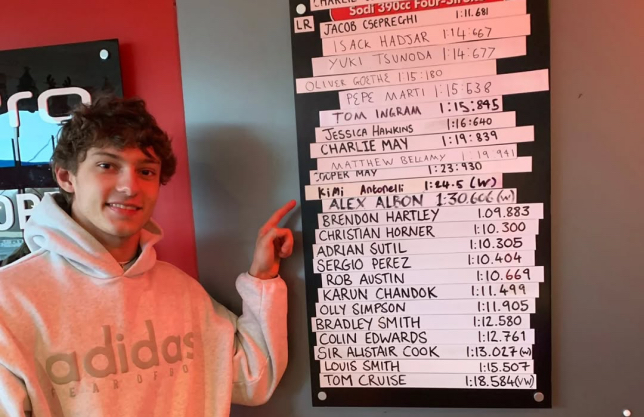 Sodi 390cc Four-Stroke
LR
JACOB CSEPREGHI 1:11.681
ISACK HADJAR 1:14:467
YUKI TSUNODA 1:14:677
OLIVER GOETHE 1:15:180
PEPE MARTI 1:15:638
TOM INGRAM 1:15:845
JESSICA HAWKINS 1:16:640
CHARLIE MAY 1:19:839
MATTHEW BELLAMY 1:19.941
MAY 1:23:930
KiMi Antonelli 1:24.5 (W)
ALEX ALBON 1:30.606 (W)
BRENDON HARTLEY 1.09.883
CHRISTIAN HORNER 1:10.300
ADRIAN SUTIL 1:10.305
SERGIO PEREZ 1:10.404
ROB AUSTIN 1:10.669
KARUN CHANDOK 1:11.499
OLLY SIMPSON 1:11.905
BRADLEY SMITH 1:12.580
COLIN EDWARDS 1:12.761
SIR ALISTAIR COOK 1:13.027 (W)
LOUIS SMITH 1:15.507
TOM CRUISE 1:18.584 (VW)
adidas
FEAR OF